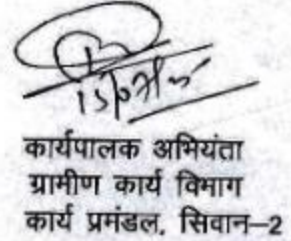 कार्यपालक अभियंता
ग्रामीण कार्य विभाग
कार्य प्रमंडल, सिवान–2